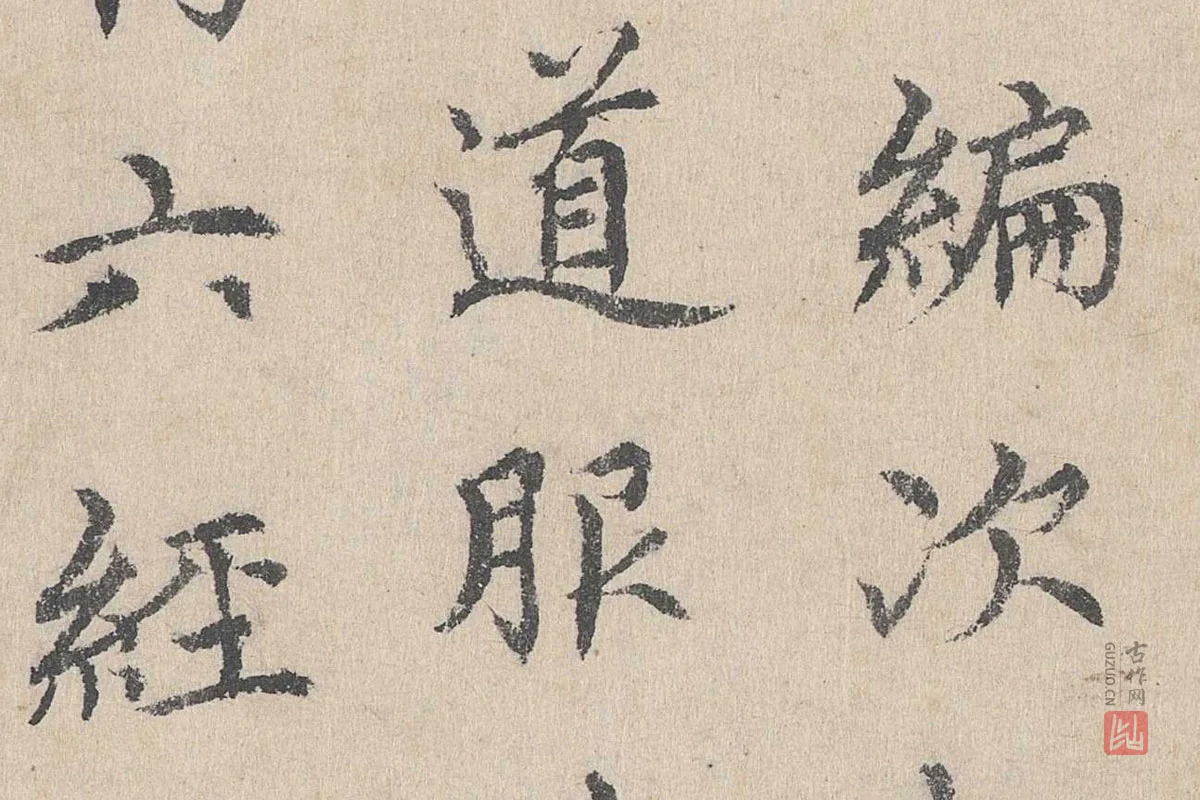 編次
道服
六經
古作网
GUZUO.CN